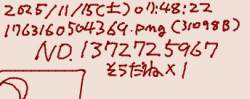 2025/11/15(土)07:48:22
1763160504369.png(31098B)
NO.1372725967
そうだねx1